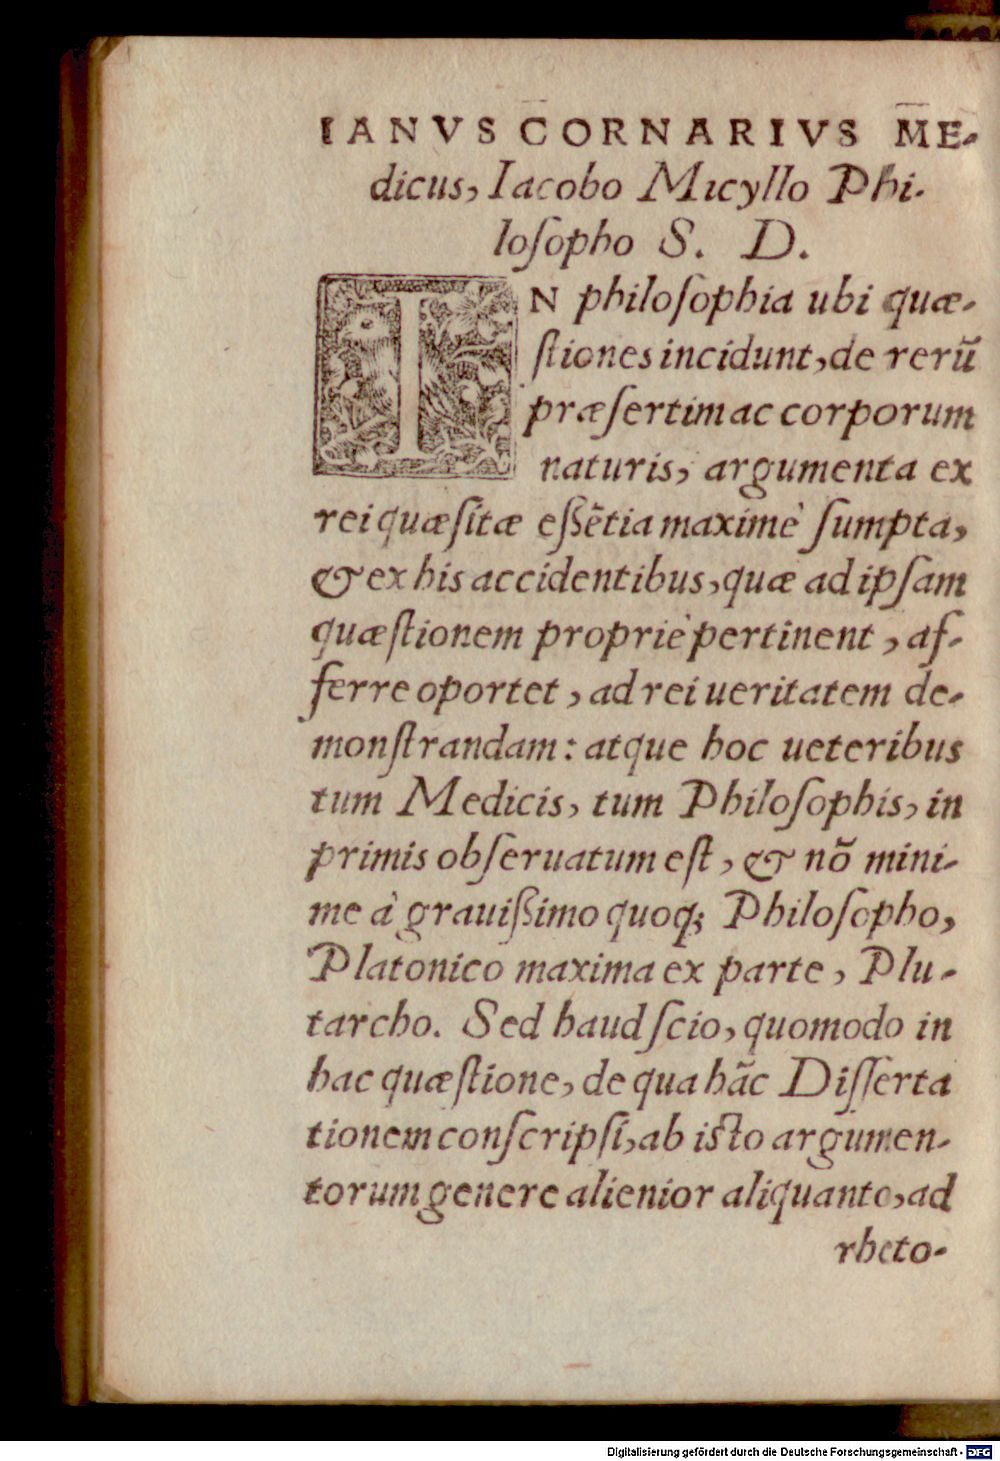 IANVS CORNARIVS ME-
dicus, Iacobo Micyllo Phi-
losopho S. D.
IN philosophia ubi quæ-
stiones incidunt, de rerũ
præsertim ac corporum
naturis, argumenta ex
rei quæsitæ eßẽtia maximè sumpta,
& ex his accidentibus, quæ ad ipsam
quæstionem propriè pertinent, af-
ferre oportet, ad rei ueritatem de-
monstrandam: atque hoc ueteribus
tum Medicis, tum Philosophis, in
primis obseruatum est, & nõ mini-
me à grauißimo quoq; Philosopho,
Platonico maxima ex parte, Plu-
tarcho. Sed haud scio, quomodo in
hac quæstione, de qua hãc Disserta
tionem conscripsi, ab isto argumen-
torum genere alienior aliquanto, ad
rheto-
Digitalisierung gefördert durch die Deutsche Forschungsgemeinschaft - DFG